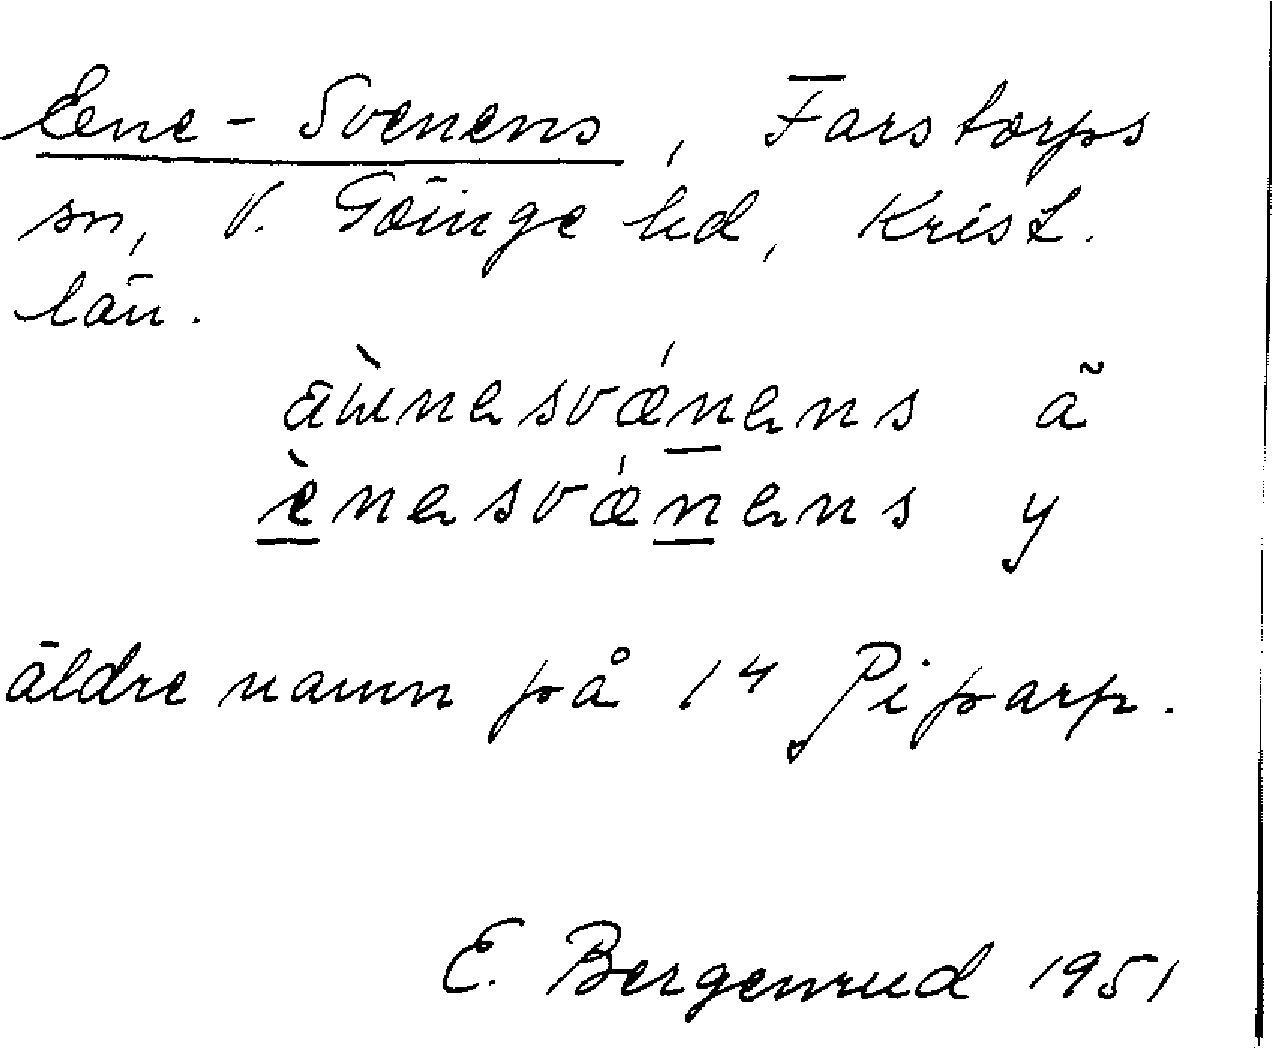 Ene-Svenens, Farstorps
sn, V. Göinge hd, Krist.
län.
äìnesvǽnens ã
ènesvǽnens y
äldre namn på 14 Piparp.
E. Bergenrud 1951